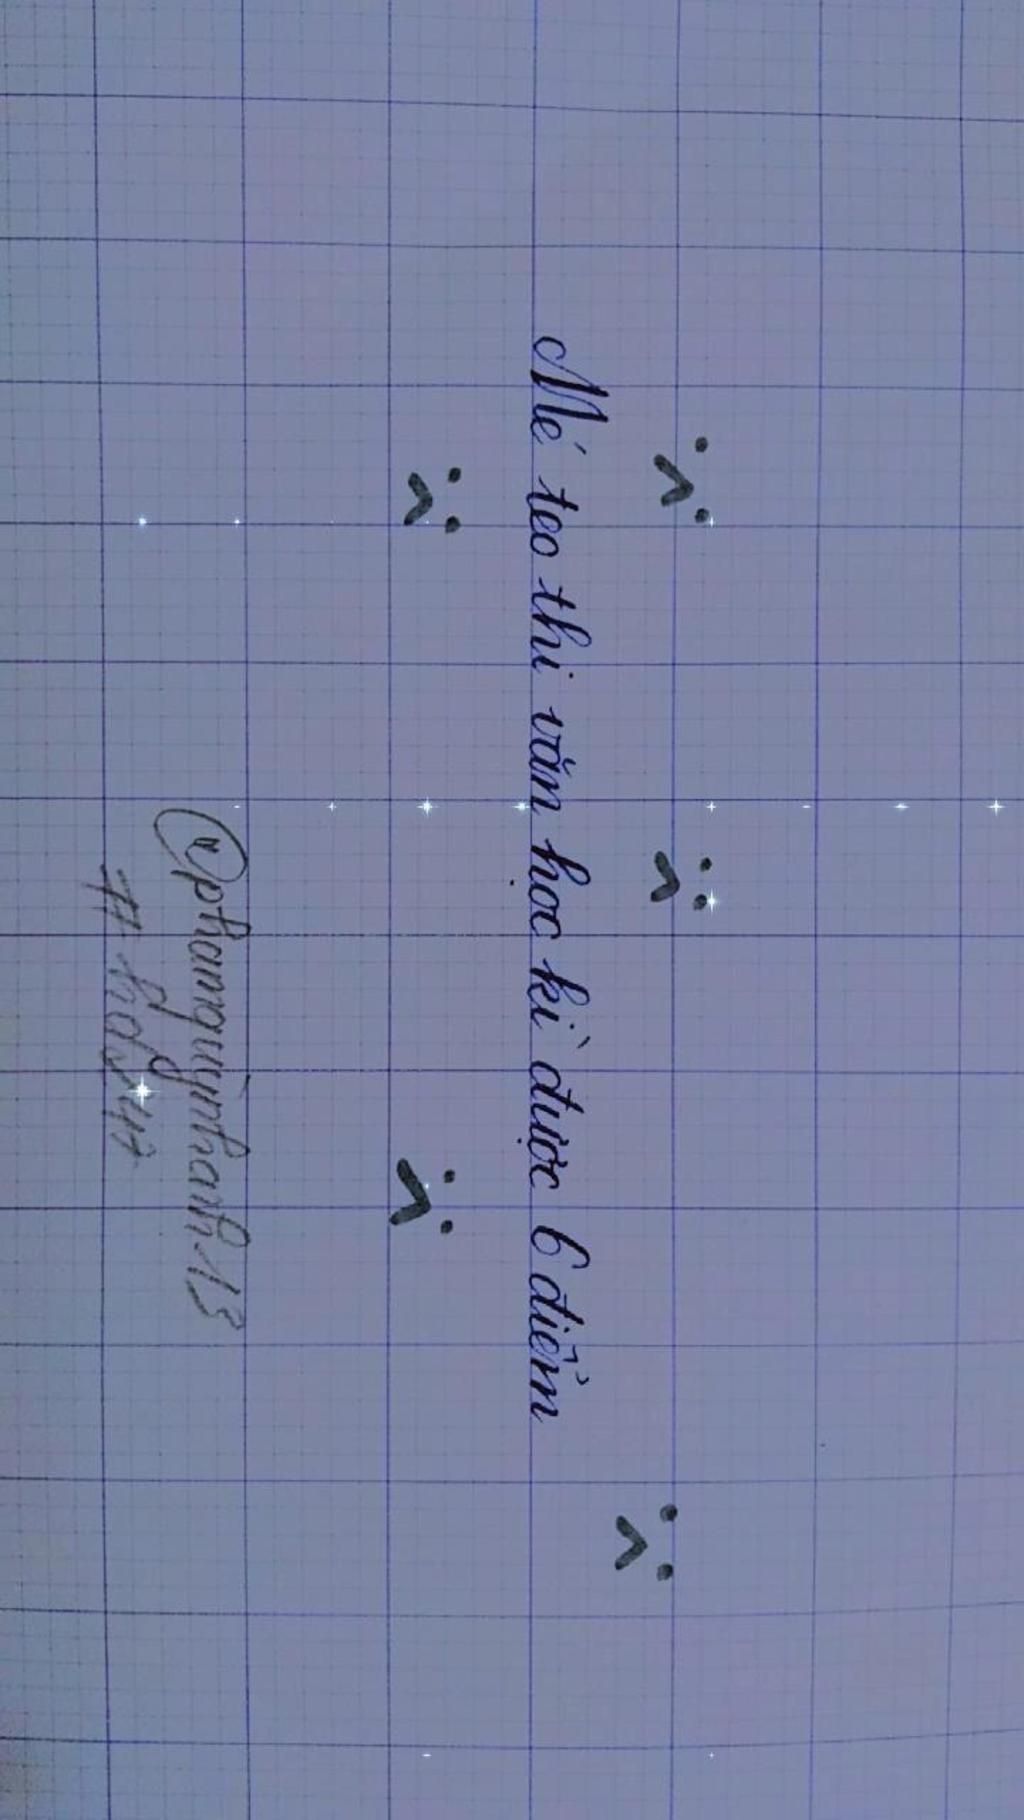 Mé teo thi văn học kì được 6 điểm
@phamquynhanh.13